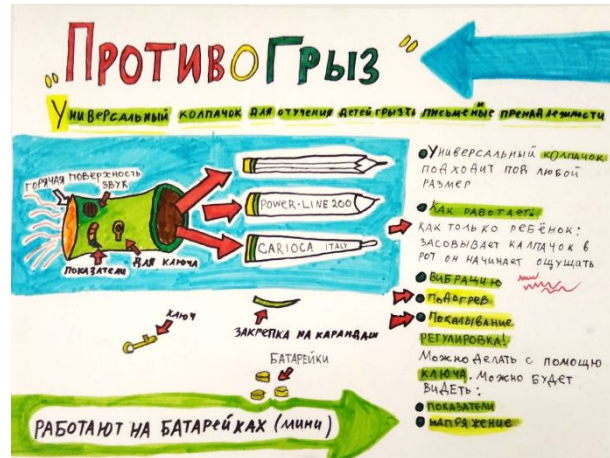 "ПРОТИВОГРЫЗ"
УНИВЕРСАЛЬНЫЙ КОЛПАЧОК ДЛЯ ОТУЧЕНИЯ ДЕТЕЙ ГРЫЗТЬ ПИСЬМЕНЫЕ ПРЕНАДЛЕЖНОСТИ
ГОРЯЧАЯ ПОВЕРХНОСТЬ
ЗВУК
ПОКАЗАТЕЛИ
ДЛЯ КЛЮЧА
POWER-LINE 200
CARIOCA ITALY
КЛЮЧ
ЗАКРЕПКА НА КАРАНДАШ
БАТАРЕЙКИ
РАБОТАЮТ НА БАТАРЕЙКАХ (МИНИ)
УНИВЕРСАЛЬНЫЙ КОЛПАЧОК
ПОДХОДИТ ПОД ЛЮБОЙ
РАЗМЕР
КАК РАБОТАЕТ:
КАК ТОЛЬКО РЕБЁНОК:
ЗАСОВЫВАЕТ КАЛПАЧОК В
РОТ ОН НАЧИНАЕТ ОЩУЩАТЬ
ВИБРАЦИЮ
ПОДОГРЕВ
ПОКАЛЫВАНИЕ
РЕГУЛИРОВКА!
МОЖНО ДЕЛАТЬ С ПОМОЩЬЮ
КЛЮЧА. МОЖНО БУДЕТ
ВИДЕТЬ:
ПОКАЗАТЕЛИ
НАПРЯЖЕНИЕ